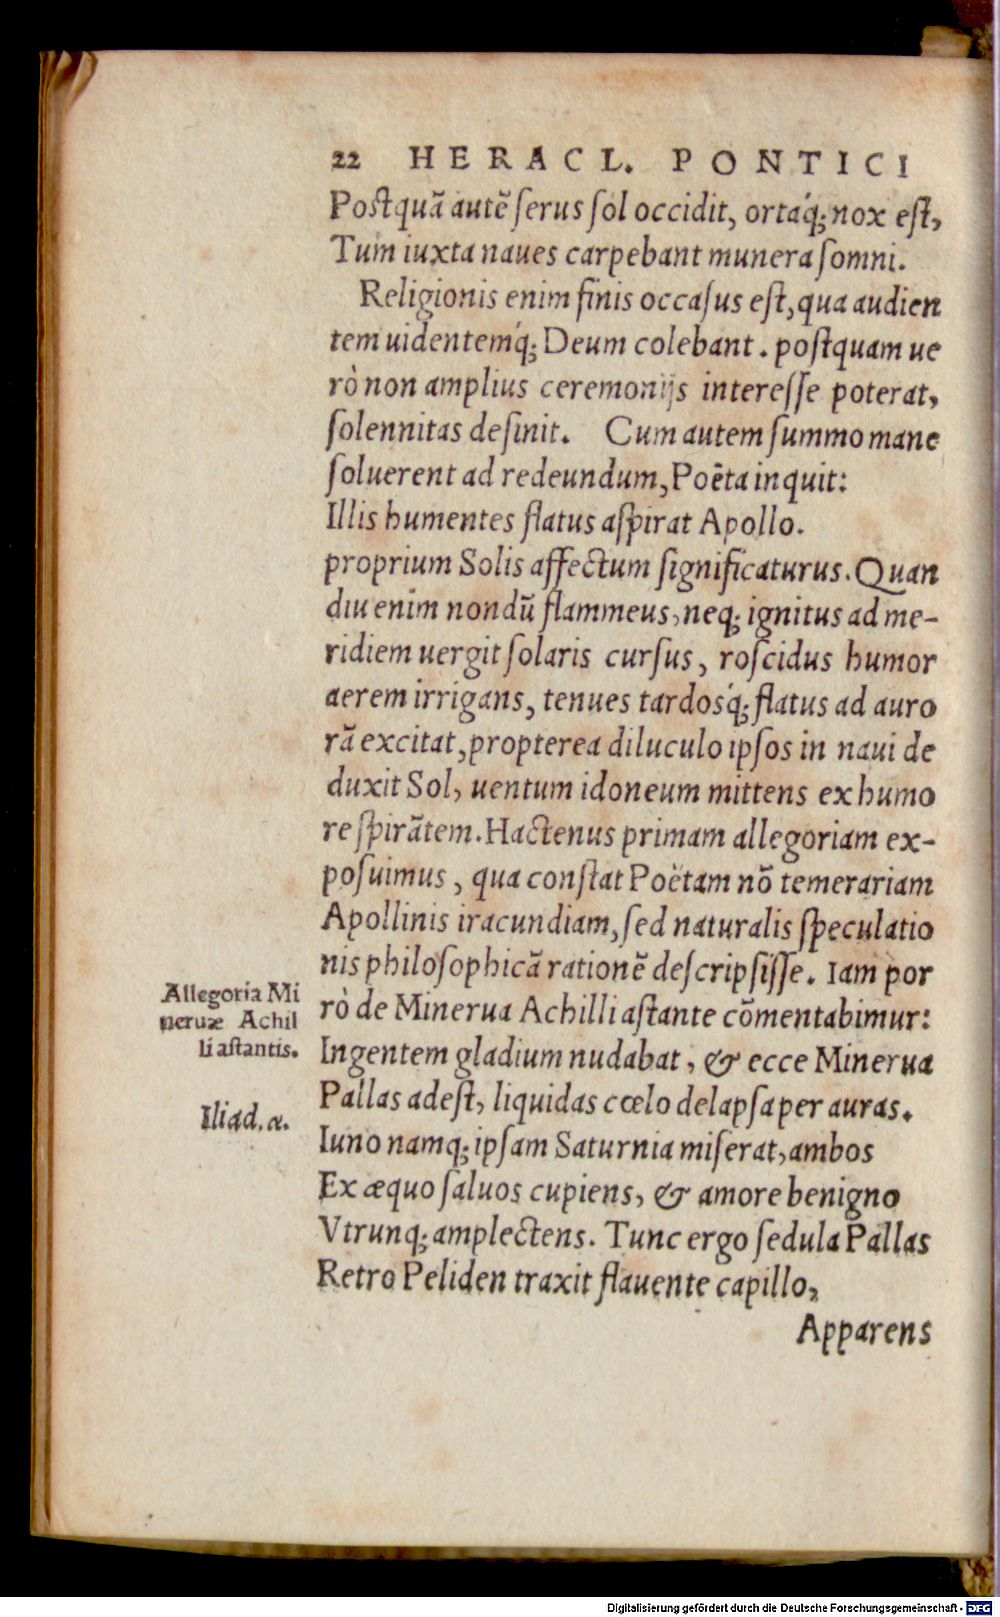 22 HERACL. PONTICI
Postquā autē ſerus ſol occidit, ortaq́; nox eſt,
Tum iuxta naues carpebant munera ſomni.
Religionis enim finis occaſus eſt, qua audien
tem uidentemq́; Deum colebant. poſtquam ue
rò non amplius ceremonijs intereſſe poterat,
ſolennitas deſinit. Cum autem ſummo mane
ſoluerent ad redeundum, Poëta inquit:
Illis humentes flatus aſpirat Apollo.
proprium Solis affectum ſignificaturus. Quan
diu enim nondū flammeus, neq; ignitus ad me-
ridiem uergit ſolaris curſus, roſcidus humor
aerem irrigans, tenues tardosq́; flatus ad auro
rā excitat, propterea diluculo ipſos in naui de
duxit Sol, uentum idoneum mittens ex humo
re ſpirātem. Hactenus primam allegoriam ex-
poſuimus, qua conſtat Poëtam nō temerariam
Apollinis iracundiam, ſed naturalis ſpeculatio
nis philoſophicā rationē deſcripſiſſe. Iam por
Allegoria Mi
neruæ Achil
li aſtantis.
rò de Minerua Achilli aſtante cōmentabimur:
Ingentem gladium nudabat, & ecce Minerua
Pallas adeſt, liquidas cœlo delapſa per auras.
Iliad. α.
Iuno namq; ipſam Saturnia miſerat, ambos
Ex æquo ſaluos cupiens, & amore benigno
Vtrunq; amplectens. Tunc ergo ſedula Pallas
Retro Peliden traxit flauente capillo,
Apparens
Digitalisierung gefördert durch die Deutsche Forschungsgemeinschaft - DFG